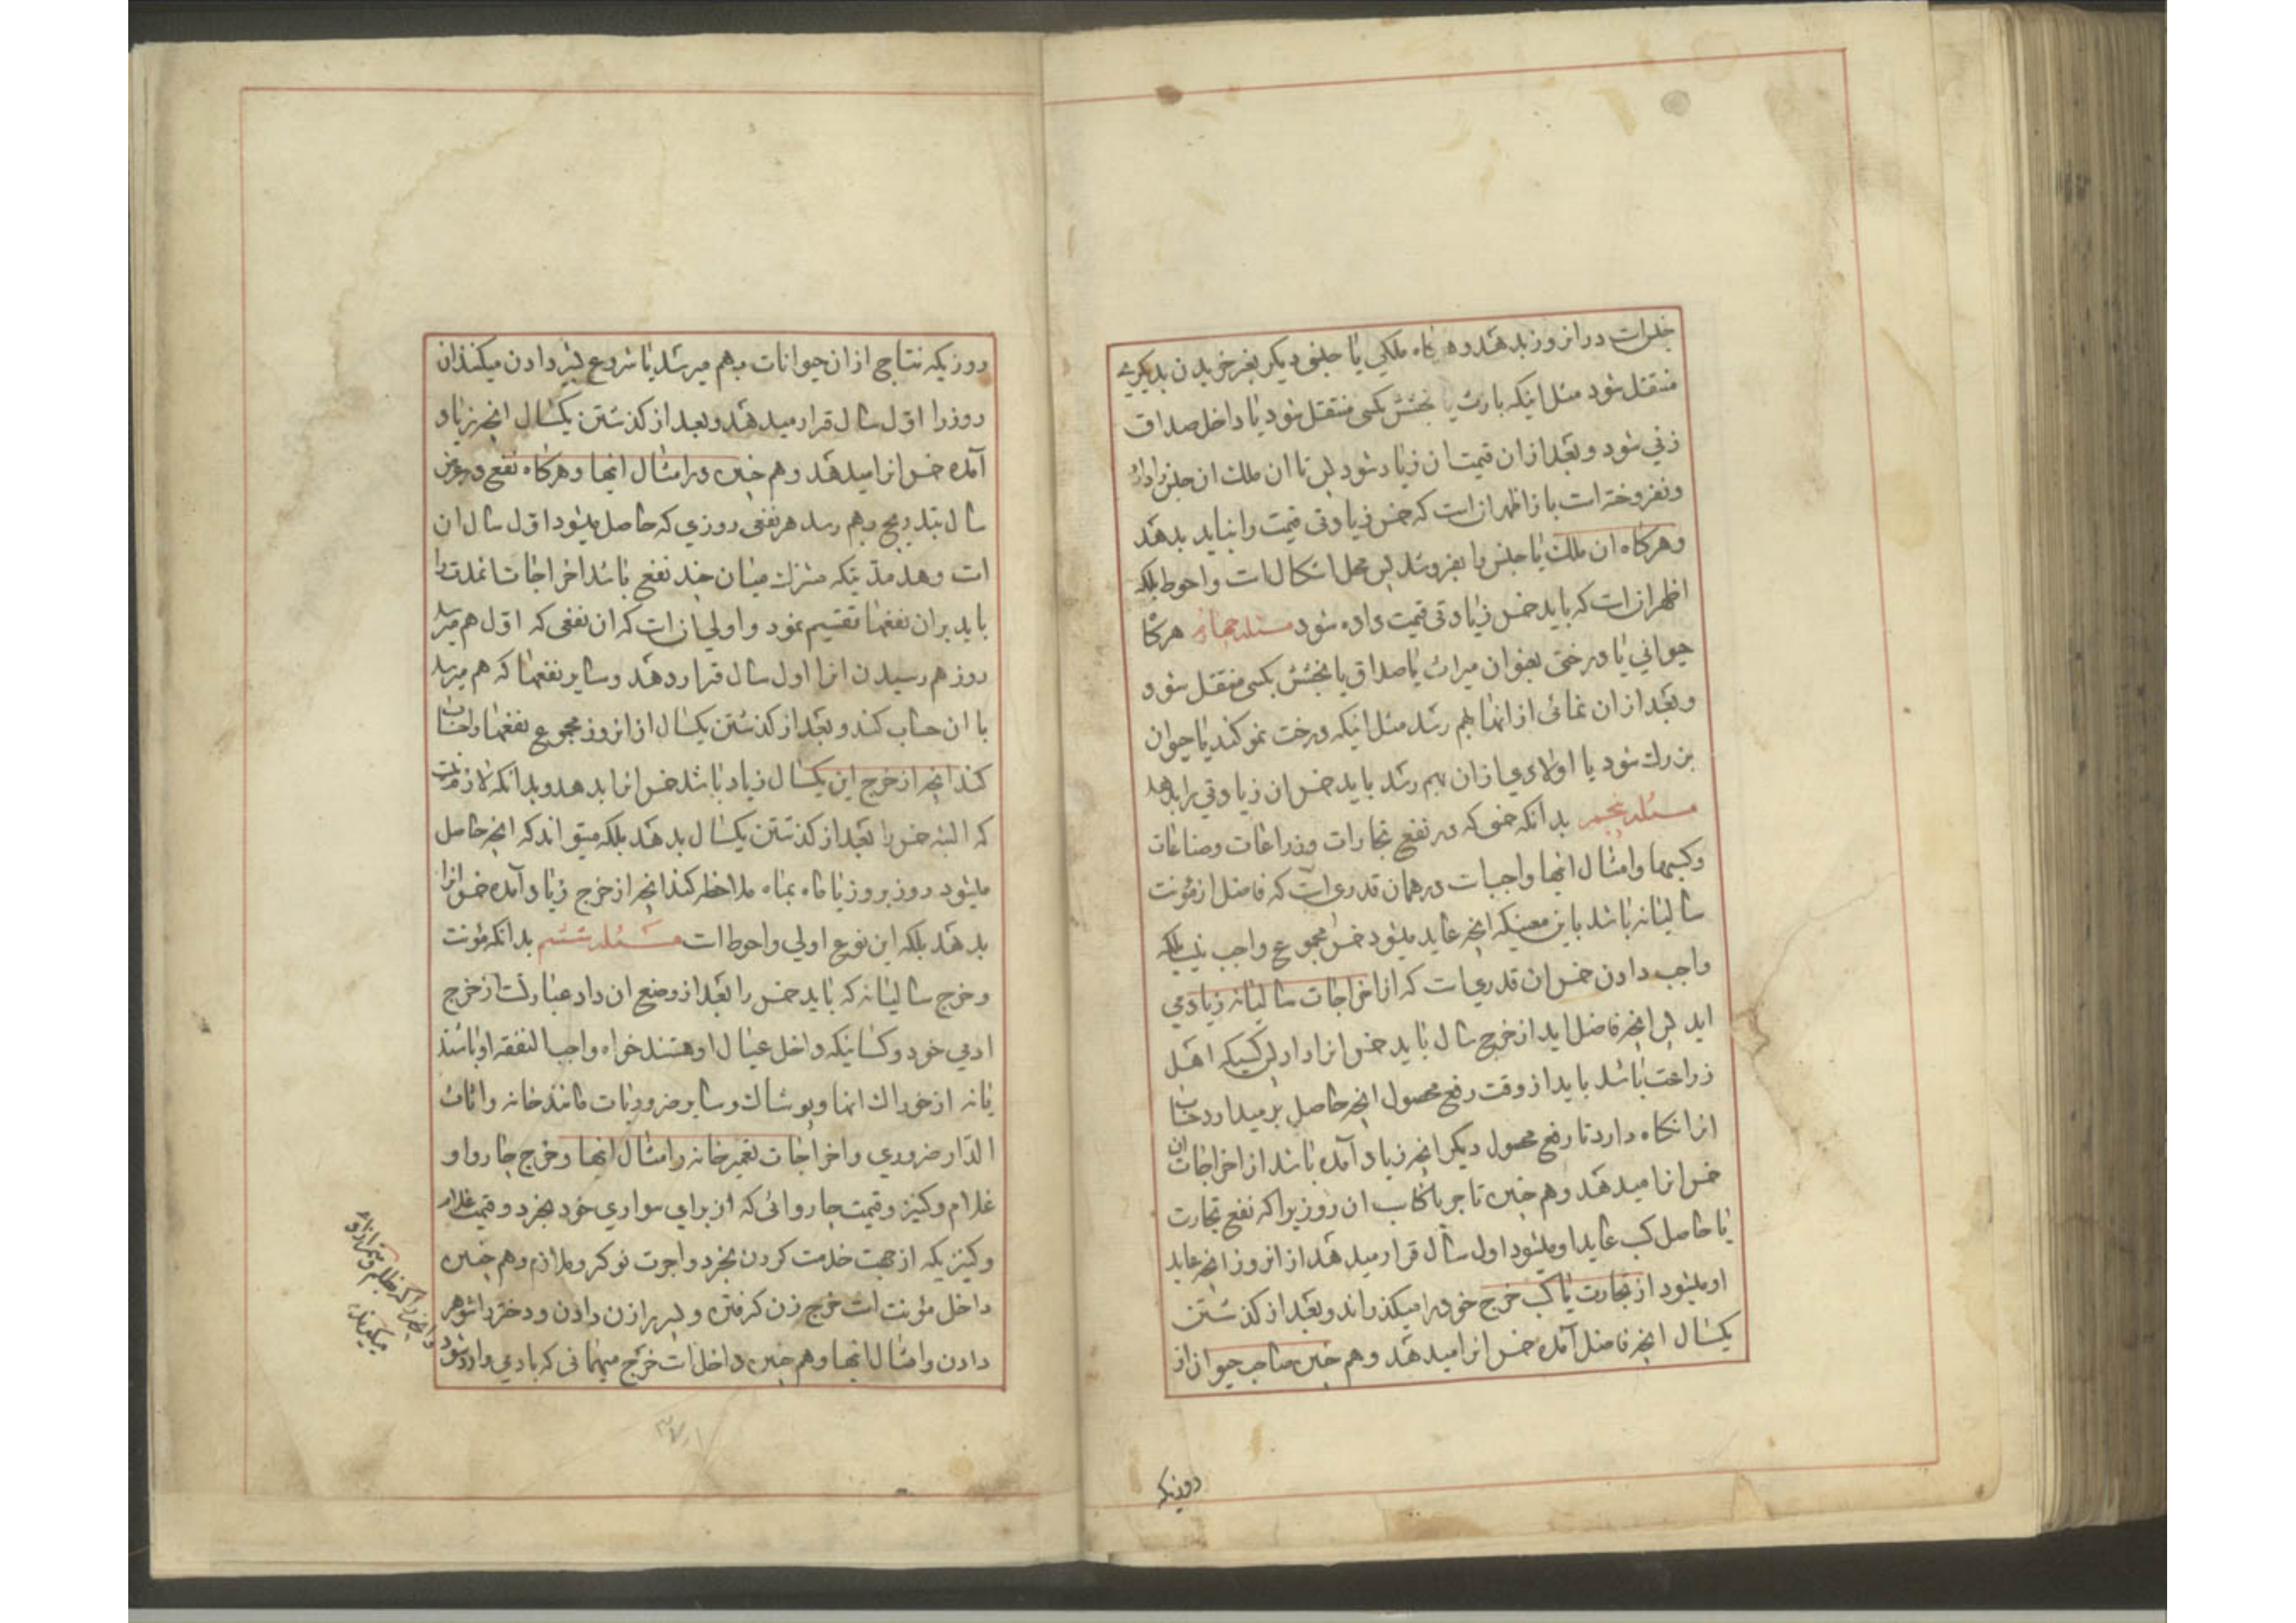 خلرات در انروز بدهد و هرگاه ملکی یا جنسی دیگر بغیر خریدن بدیگری
منتقل شود مثل اینکه بارث یا بخشش بکسی منتقل شود یا داخل صداق
زنی شود و بعد از ان قیمت ان زیاد شود پس تا ان ملک ان جنس را دارد
و نفروخته است باز اظهر ان است که خمس زیادتی قیمت را نباید بدهد
و هرگاه ان ملک یا جنس را بفروشد پس محل اشکال است و احوط بلکه
اظهر ان است که باید خمس زیادتی قیمت داده شود مسئله چهارم هرگاه
حیوانی یا درختی بعنوان میراث یا صداق یا بخشش بکسی منتقل شود
و بعد از ان نمائی از انها بهم رسد مثل اینکه درخت نمو کند یا حیوان
بزرک شود یا اولادی از ان بهم رسد باید خمس ان زیادتی را بدهد
مسئله پنجم بدانکه خمسی که در نفع تجارات و زراعات و صناعات
و کسبها و امثال انها واجبست در همان قدری است که فاضل از مؤنت
سالیانه باشد باین معنیکه انچه عاید میشود خمس مجموع واجب نیست بلکه
واجب دادن خمس ان قدریست که از اخراجات سالیانه زیاد می
اید پس انچه فاضل اید از خرج سال باید خمس انرا داد پس کسیکه اهل
زراعت باشد باید از وقت رفع محصول انچه حاصل بر میدارد حساب
انرا نگاه دارد تا رفع محصول دیگر انچه زیاد آمده باشد از اخراجات ان
خمس انرا میدهد و هم چنین تاجر یا کاسب ان روزیرا که نفع تجارت
یا حاصل کسب عاید او میشود اول سال قرار میدهد از انروز انچه عاید
او میشود از تجارت یا کسب خرج خود را میگذراند و بعد از گذشتن
یکسال انچه فاضل آمده خمس انرا میدهد و هم چنین صاحب حیوان از
روزیکه
روزیکه نتاجی از ان حیوانات بهم میرسد یا شروع بشیر دادن میکنند ان
روز را اول سال قرار میدهد و بعد از گذشتن یکسال انچه زیاد
آمده خمس انرا میدهد و هم چنین در امثال انها و هرگاه نفع در عرض
سال بتدریج بهم رسد هر نفعی روزی که حاصل میشود اول سال ان
است و هر مدتیکه مشترک میان چند نفع باشد اخراجات انمدت را
باید بران نفعها تقسیم نمود و اولی ان است که ان نفعی که اول هم میرسد
روز هم رسیدن انرا اول سال قرار دهد و سایر نفعها که هم میرسد
با ان حساب کند و بعد از گذشتن یکسال از انروز مجموع نفعها را حساب
کند انچه از خرج این یکسال زیاد باشد خمس انرا بدهد و بدانکه لازم نیست
که البته خمس را بعد از گذشتن یکسال بدهد بلکه میتواند که انچه حاصل
میشود روز بروز یا ماه بماه ملاحظه کند انچه از خرج زیاد آمده خمس انرا
بدهد بلکه این نوع اولی و احوط است مسئله ششم بدانکه مؤنت
و خرج سالیانه که باید خمس را بعد از وضع ان داد عبارتست از خرج
ادمی خود و کسانیکه داخل عیال او هستند خواه واجب النفقه او باشند
یا نه از خوراک انها و پوشاک و سایر ضروریات مانند خانه و اثاث
الدار ضروری و اخراجات تعمیر خانه و امثال انها و خرج چاروا و
غلام و کنیز و قیمت چاروائی که از برای سواری خود بخرد و قیمت غلام
و کنیزیکه از جهت خدمت کردن بخرد و اجرت نوکر و ملازم و هم چنین
داخل مؤنت است خرج زن گرفتن و پسر را زن دادن و دختر را شوهر
دادن و امثال انها و هم چنین داخل است خرج میهمانی که بادمی وارد شود
و انچیزیرا که ظالم و ستم از او
میگیرند